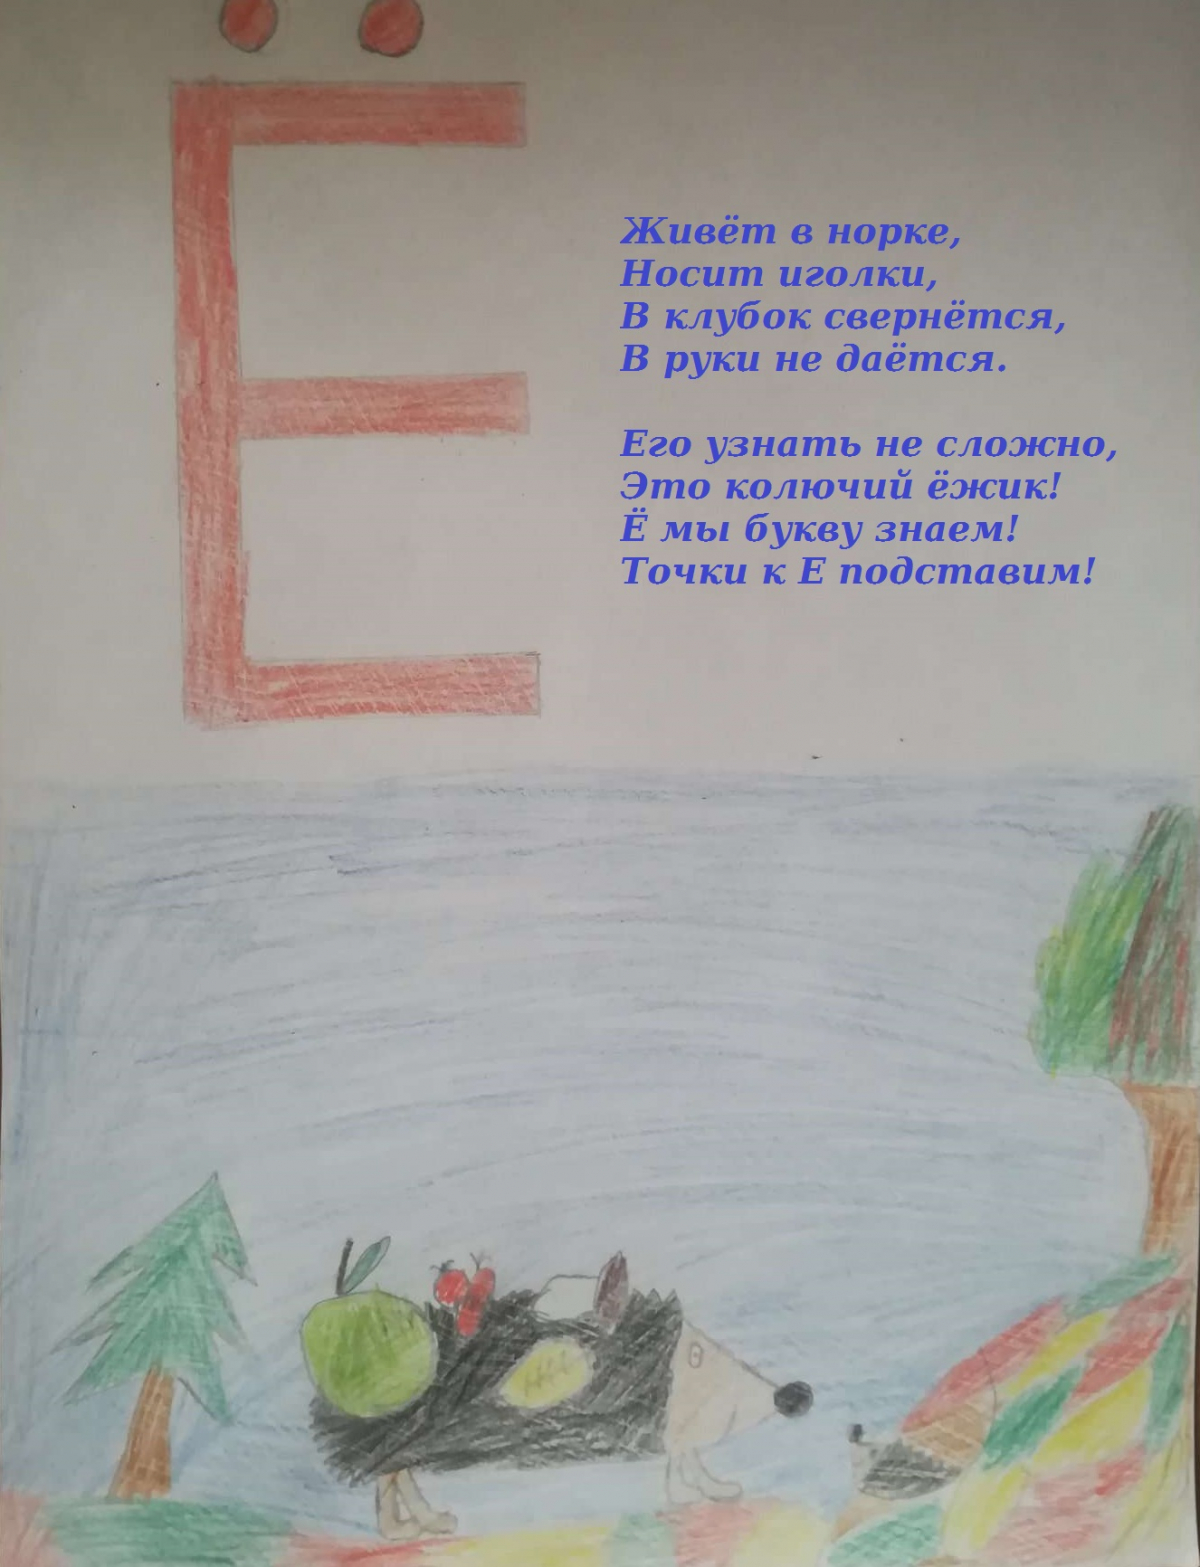 Ё
Живёт в норке,
Носит иголки,
В клубок свернётся,
В руки не даётся.

Его узнать не сложно,
Это колючий ёжик!
Ё мы букву знаем!
Точки к Е подставим!